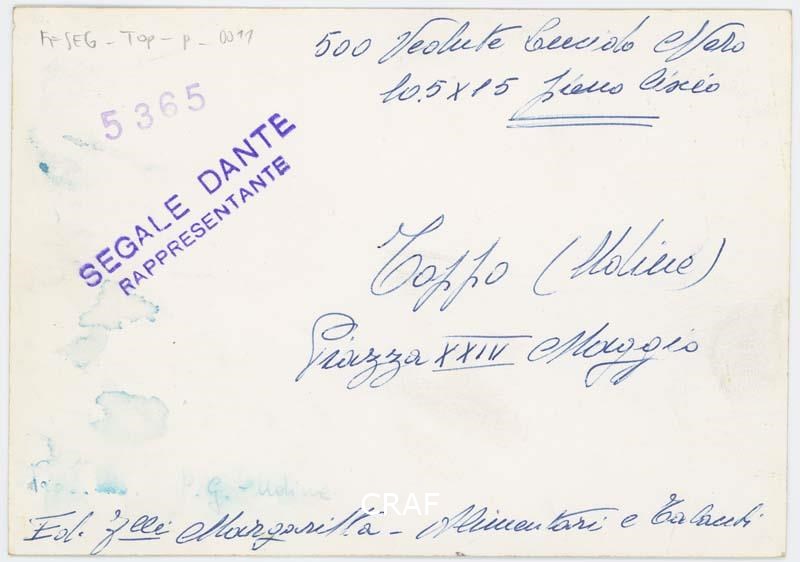 FF-SEG-Top-p-0011
500 Vedute Lucido Nero
10.5x15 piano liscio
5365
SEGALE DANTE
RAPPRESENTANTE
Toppo (Udine)
Piazza XXIV Maggio
P.G. - Udine
CRAF
Ed. F.lli Margaritta - Alimentari e Tabacchi